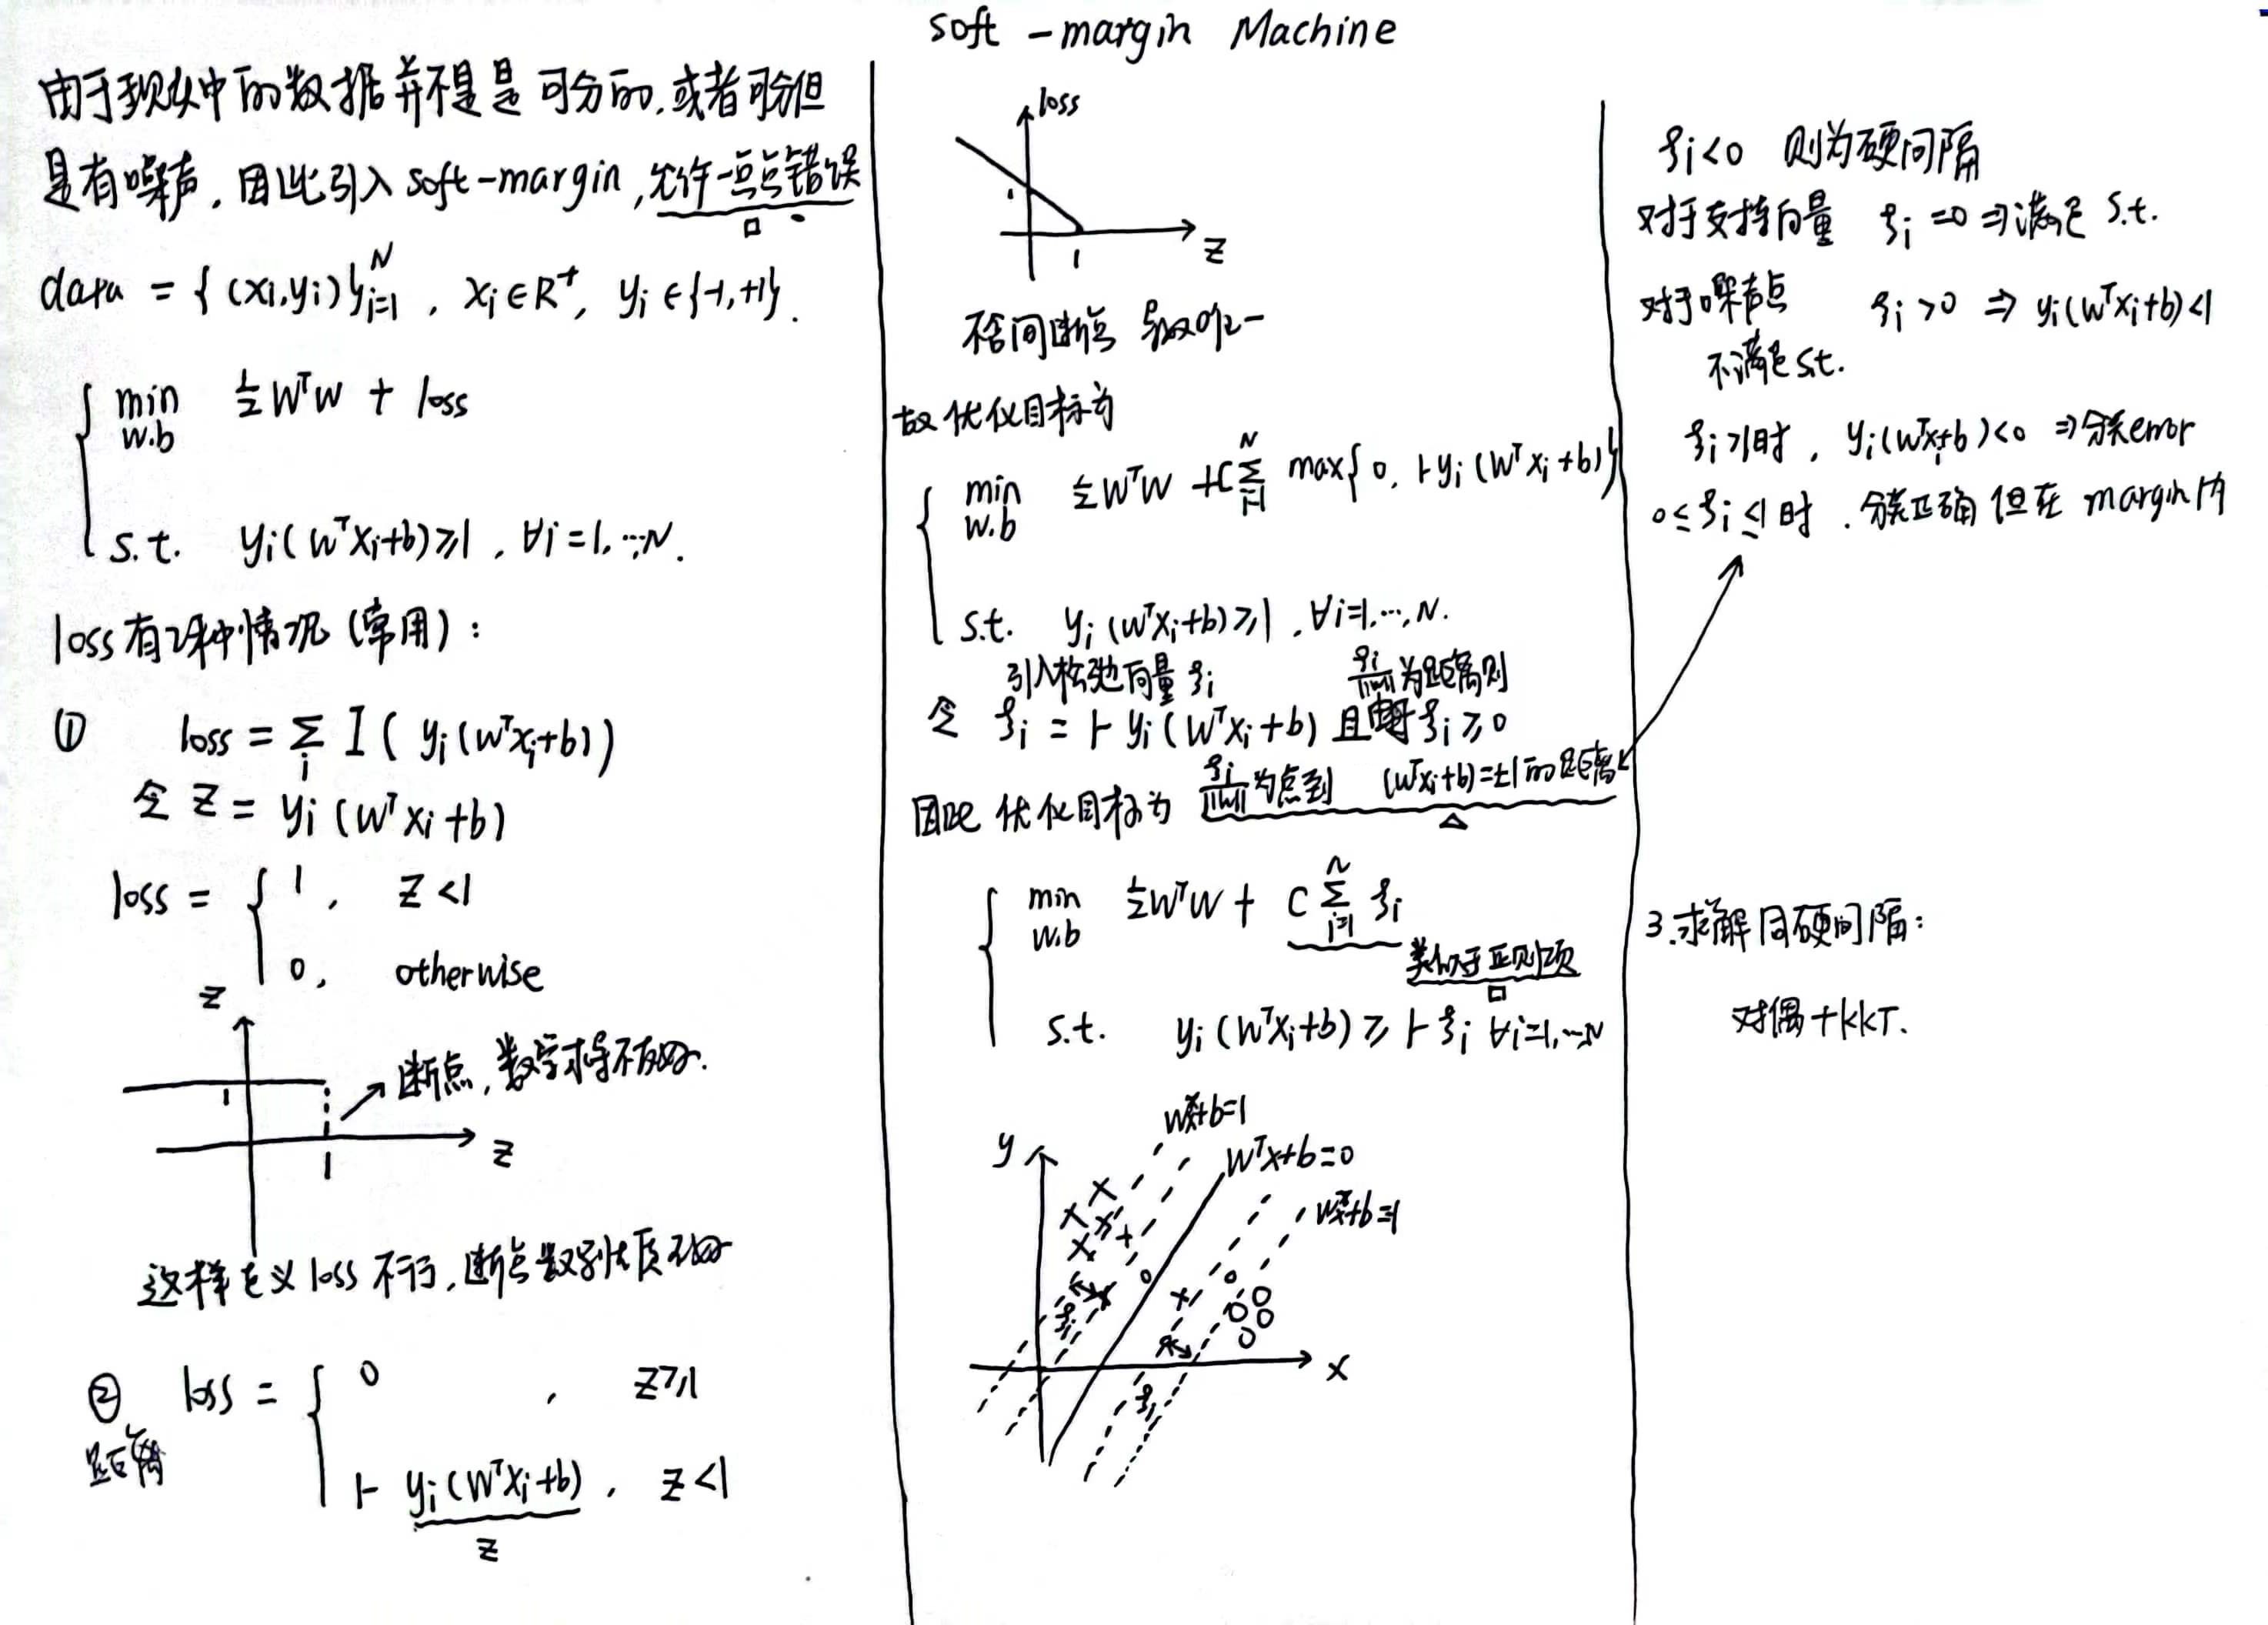 soft-margin Machine
由于现实中的数据并不是是可分的,或者可分但
是有噪声,因此引入soft-margin,允许一点点错误
data = { (xi,yi)}ᴺi=1 , xi∈R⁺, yi∈{-1,+1}.
min ½WᵀW + loss
w.b
s.t. yi(wᵀxi+b)≥1 , ∀i=1,…,N.
loss有2种情况(常用):
① loss = Σi I( yi(wᵀxi+b))
令 Z = yi(wᵀxi+b)
loss = { 1 , Z<1
0 , otherwise
Z
1
断点,数学求导不友好.
Z
1
这样定义loss不行,断点数学性质不好
② loss = { 0 , Z≥1
距离
1- yi(wᵀxi+b) , Z<1
Z
loss
1
Z
1
不含间断点
故优化目标为
min ½WᵀW +C Σᴺi=1 max{ 0, 1-yi(wᵀxi+b)}
w.b
s.t. yi(wᵀxi+b)≥1 , ∀i=1,…,N.
引入松弛向量 ξi ξi/||w||为距离则
令 ξi = 1- yi(wᵀxi+b) 且 ξi≥0
因此 优化目标为 ξi/||w||为点到 (wᵀxi+b)=±1的距离
min ½WᵀW + C Σᴺi=1 ξi
w.b
类似于正则项
s.t. yi(wᵀxi+b) ≥ 1-ξi ∀i=1,…N
wᵀx+b=1
y
wᵀx+b=0
wᵀx+b=-1
ξi
x
ξi
ξi<0 则为硬间隔
对于支持向量 ξi=0 ⇒满足 s.t.
对于噪声点 ξi>0 ⇒ yi(wᵀxi+b)<1
不满足s.t.
ξi>1时, yi(wᵀxi+b)<0 ⇒分类error
0≤ξi≤1时.分类正确但在margin内
3.求解同硬间隔:
对偶+KKT.